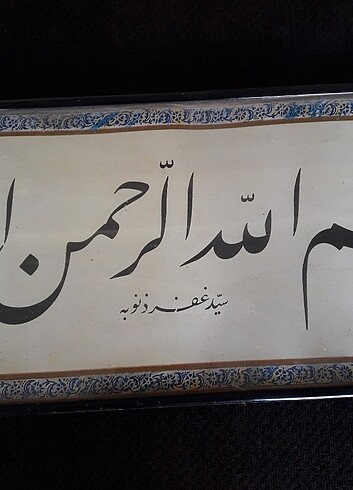 م الله الرّحمن ا
سیّد غفر ذنوبه